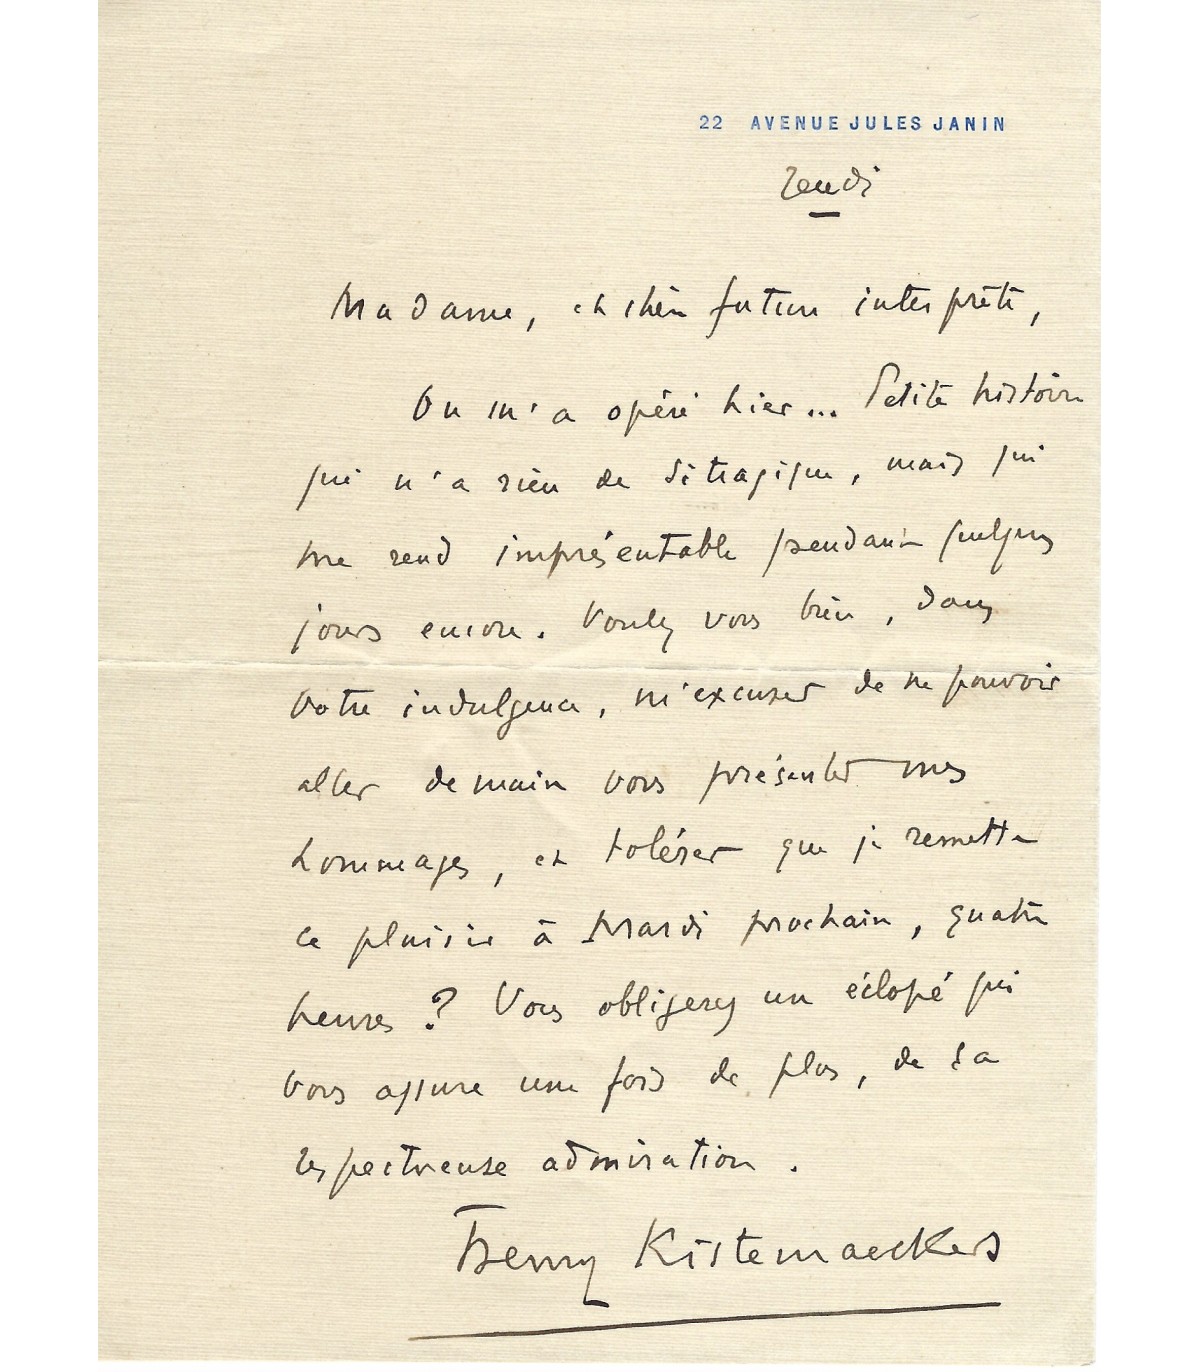 22 AVENUE JULES JANIN
Jeudi
Madame, et chère future interprète,
On m'a opéré hier... Petite histoire
qui n'a rien de si tragique, mais qui
me rend imprésentable pendant quelques
jours encore. Voulez vous bien, dans
votre indulgence, m'excuser de ne pouvoir
aller demain vous présenter mes
hommages, et tolérer que je remette
ce plaisir à Mardi prochain, quatre
heures ? Vous obligerez un éclopé qui
vous assure une fois de plus, de sa
respectueuse admiration.
Henry Kistemaeckers